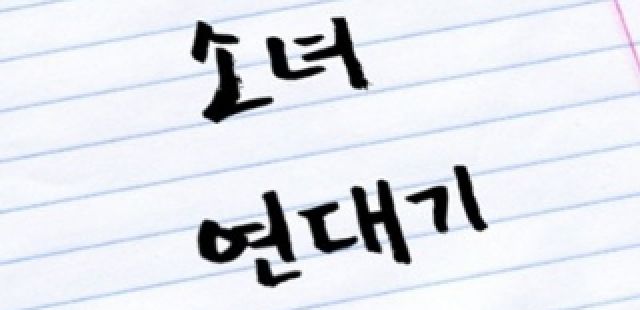 소녀
연대기